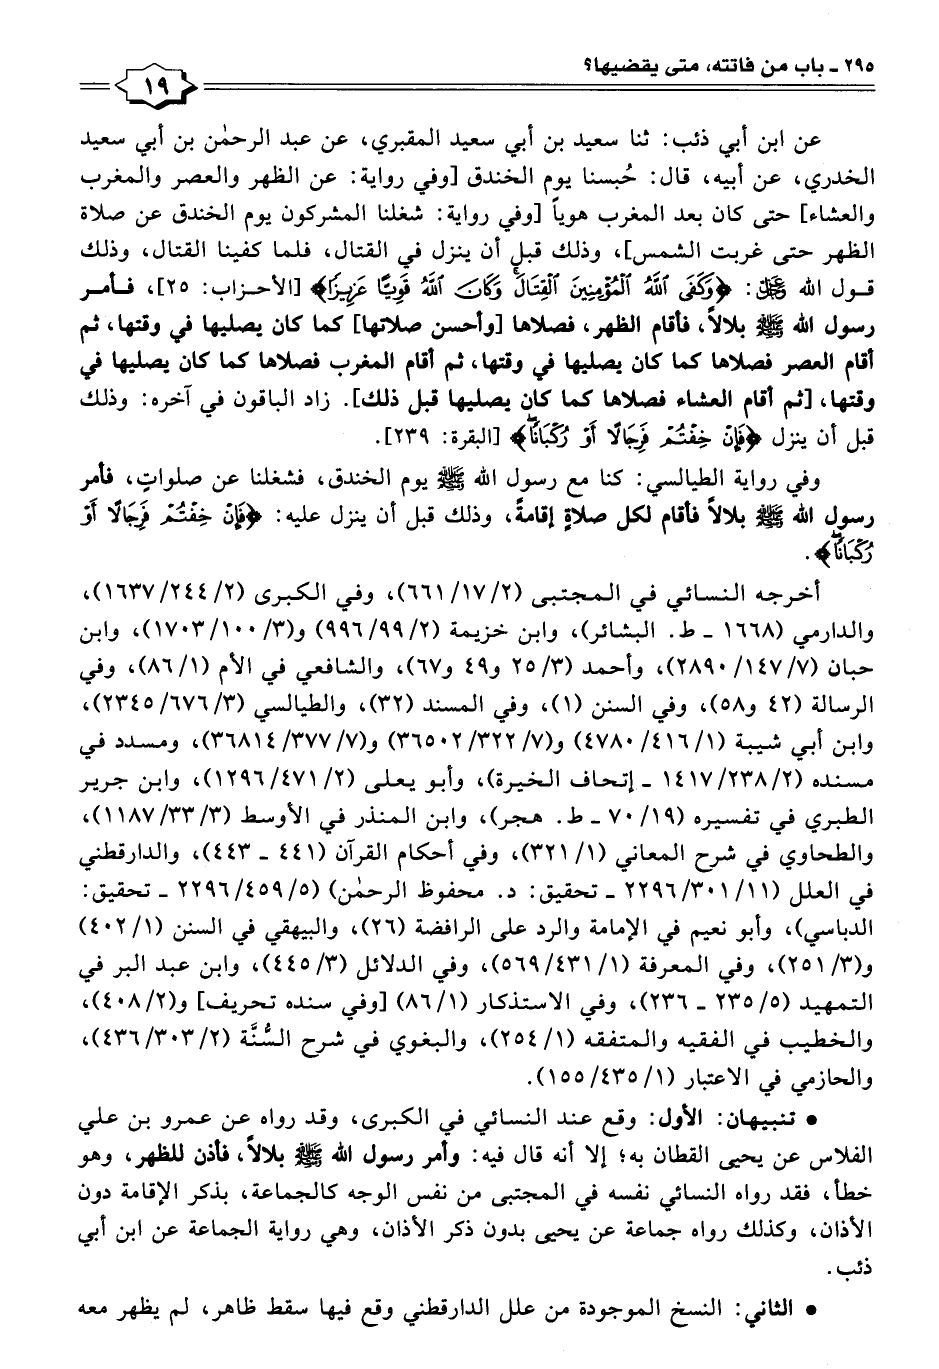 ٢٩٥ - باب من فاتته، متى يقضيها؟
١٩
عن ابن أبي ذئب: ثنا سعيد بن أبي سعيد المقبري، عن عبد الرحمٰن بن أبي سعيد
الخدري، عن أبيه، قال: حُبسنا يوم الخندق [وفي رواية: عن الظهر والعصر والمغرب
والعشاء] حتى كان بعد المغرب هوياً [وفي رواية: شغلنا المشركون يوم الخندق عن صلاة
الظهر حتى غربت الشمس]، وذلك قبل أن ينزل في القتال، فلما كفينا القتال، وذلك
قول الله ﷻ: ﴿وَكَفَى ٱللَّهُ ٱلْمُؤْمِنِينَ ٱلْقِتَالَ وَكَانَ ٱللَّهُ قَوِيًّا عَزِيزًا﴾ [الأحزاب: ٢٥]، فأمر
رسول الله ﷺ بلالاً، فأقام الظهر، فصلاها [وأحسن صلاتها] كما كان يصليها في وقتها، ثم
أقام العصر فصلاها كما كان يصليها في وقتها، ثم أقام المغرب فصلاها كما كان يصليها في
وقتها، [ثم أقام العشاء فصلاها كما كان يصليها قبل ذلك]. زاد الباقون في آخره: وذلك
قبل أن ينزل ﴿فَإِنْ خِفْتُمْ فَرِجَالًا أَوْ رُكْبَانًا﴾ [البقرة: ٢٣٩].
وفي رواية الطيالسي: كنا مع رسول الله ﷺ يوم الخندق، فشغلنا عن صلواتٍ، فأمر
رسول الله ﷺ بلالاً فأقام لكل صلاةٍ إقامةً، وذلك قبل أن ينزل عليه: ﴿فَإِنْ خِفْتُمْ فَرِجَالًا أَوْ
رُكْبَانًا﴾.
أخرجه النسائي في المجتبى (٢/١٧/٦٦١)، وفي الكبرى (٢/٢٤٤/١٦٣٧)،
والدارمي (١٦٦٨ - ط. البشائر)، وابن خزيمة (٢/٩٩/٩٩٦) و(٣/١٠٠/١٧٠٣)، وابن
حبان (٧/١٤٧/٢٨٩٠)، وأحمد (٣/٢٥ و٤٩ و٦٧)، والشافعي في الأم (١/٨٦)، وفي
الرسالة (٤٢ و٥٨)، وفي السنن (١)، وفي المسند (٣٢)، والطيالسي (٣/٦٧٦/٢٣٤٥)،
وابن أبي شيبة (١/٤١٦/٤٧٨٠) و(٧/٣٢٢/٣٦٥٠٢) و(٧/٣٧٧/٣٦٨١٤)، ومسدد في
مسنده (٢/٢٣٨/١٤١٧ - إتحاف الخيرة)، وأبو يعلى (٢/٤٧١/١٢٩٦)، وابن جرير
الطبري في تفسيره (١٩/٧٠ - ط. هجر)، وابن المنذر في الأوسط (٣/٣٣/١١٨٧)،
والطحاوي في شرح المعاني (١/٣٢١)، وفي أحكام القرآن (٤٤١ - ٤٤٣)، والدارقطني
في العلل (١١/٣٠١/٢٢٩٦ - تحقيق: د. محفوظ الرحمٰن) (٥/٤٥٩/٢٢٩٦ - تحقيق:
الدباسي)، وأبو نعيم في الإمامة والرد على الرافضة (٢٦)، والبيهقي في السنن (١/٤٠٢)
و(٣/٢٥١)، وفي المعرفة (١/٤٣١/٥٦٩)، وفي الدلائل (٣/٤٤٥)، وابن عبد البر في
التمهيد (٥/٢٣٥ - ٢٣٦)، وفي الاستذكار (١/٨٦) [وفي سنده تحريف] و(٢/٤٠٨)،
والخطيب في الفقيه والمتفقه (١/٢٥٤)، والبغوي في شرح السُّنَّة (٢/٣٠٣/٤٣٦)،
والحازمي في الاعتبار (١/٤٣٥/١٥٥).
• تنبيهان: الأول: وقع عند النسائي في الكبرى، وقد رواه عن عمرو بن علي
الفلاس عن يحيى القطان به؛ إلا أنه قال فيه: وأمر رسول الله ﷺ بلالاً، فأذن للظهر، وهو
خطأ، فقد رواه النسائي نفسه في المجتبى من نفس الوجه كالجماعة، بذكر الإقامة دون
الأذان، وكذلك رواه جماعة عن يحيى بدون ذكر الأذان، وهي رواية الجماعة عن ابن أبي
ذئب.
• الثاني: النسخ الموجودة من علل الدارقطني وقع فيها سقط ظاهر، لم يظهر معه